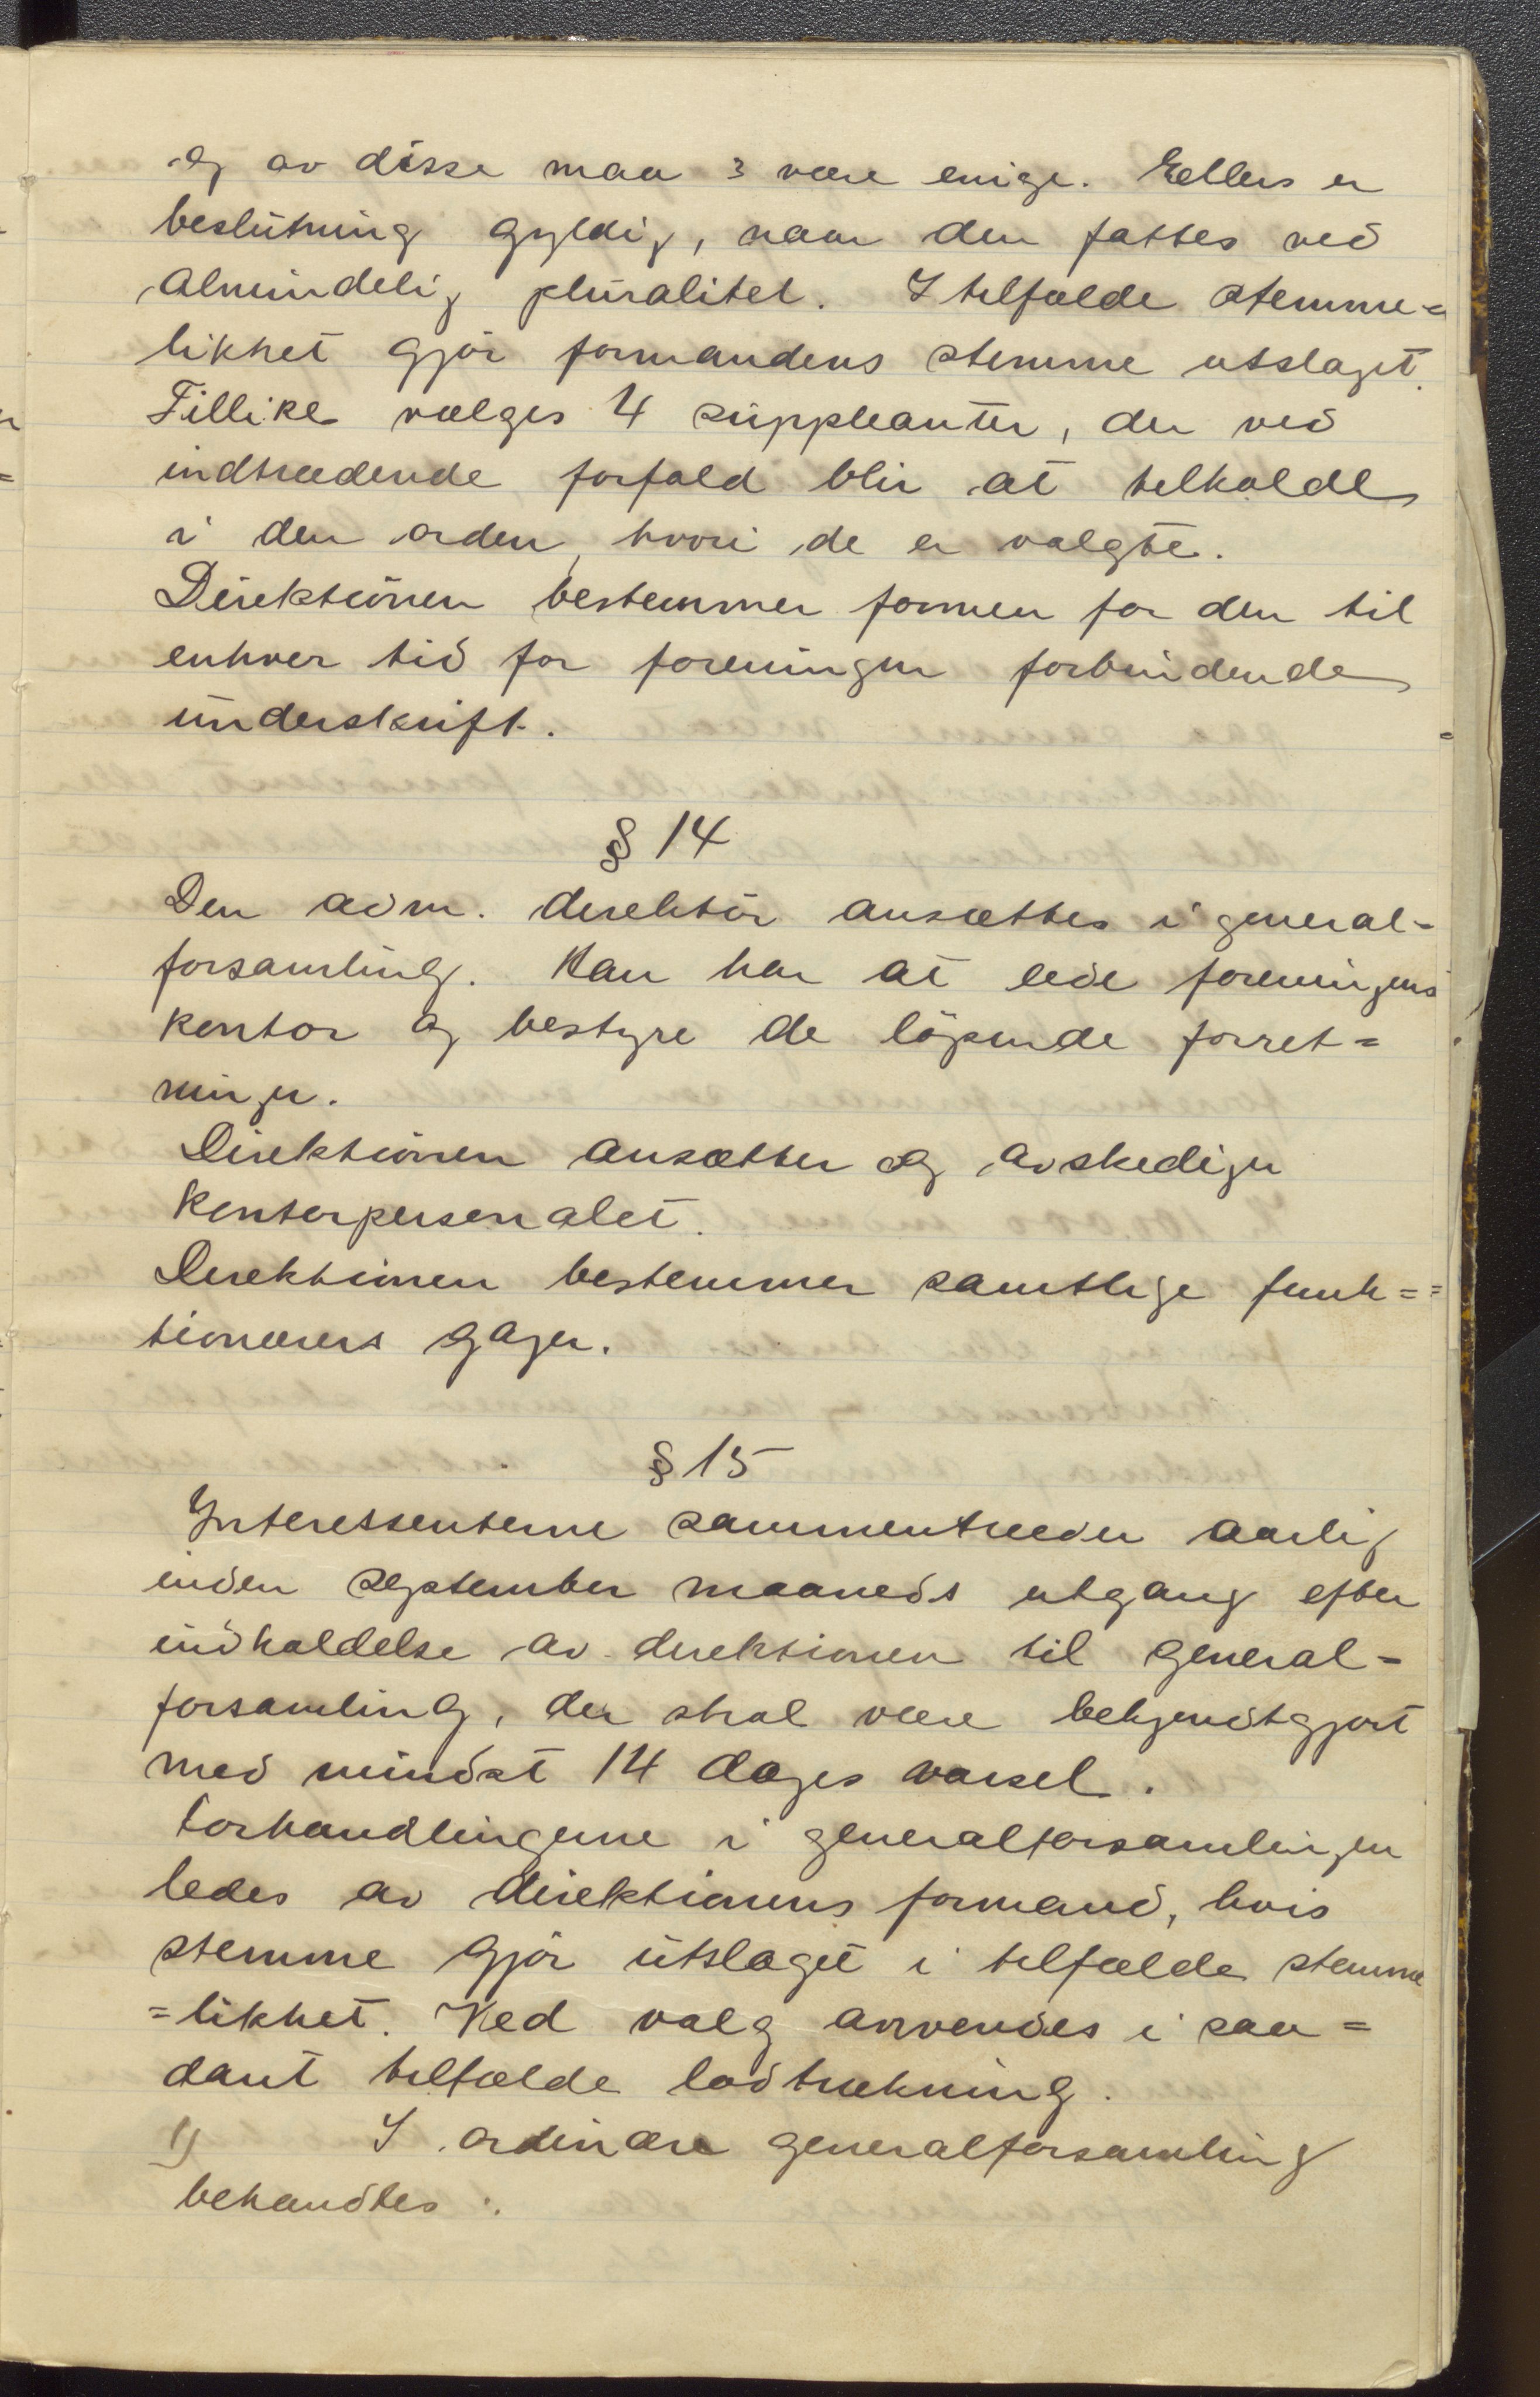 og av disse maa 3 være enige. Eellers er
beslutning gyldig, naar den fattes ved
almindelig pluralitet. I tilfælde stemme=
likhet gjör formandens stemme utslaget.
Tillike vælges 4 suppleanter, der ved
indtrædende forfald blir at tilkalde
i den orden, hvori de er valgte.
Direktionen bestemmer formen for den til
enhver tid for foreningen forbindende
underskrift.
§ 14
Den adm. direktör ansættes i general-
forsamling. Han har at lede foreningens
kontor og bestyre de löpende forret=
ninger.
Direktionen ansætter og avskediger
kontorpersonalet.
Direktionen bestemmer samtlige funk==
tionærers gager.
§ 15
Interessenterne sammentræder aarlig
inden september maaneds utgang efter
indkaldelse av direktionen til general-
forsamling, der skal være bekjendtgjort
med mindst 14 dages varsel.
Forhandlingerne i generalforsamlingen
ledes av direktionens formand, hvis
stemme gjör utslaget i tilfælde stemme
=likhet. Ved valg anvendes i saa=
dant tilfælde lodtrækning.
1) I ordinære generalforsamling
behandles: